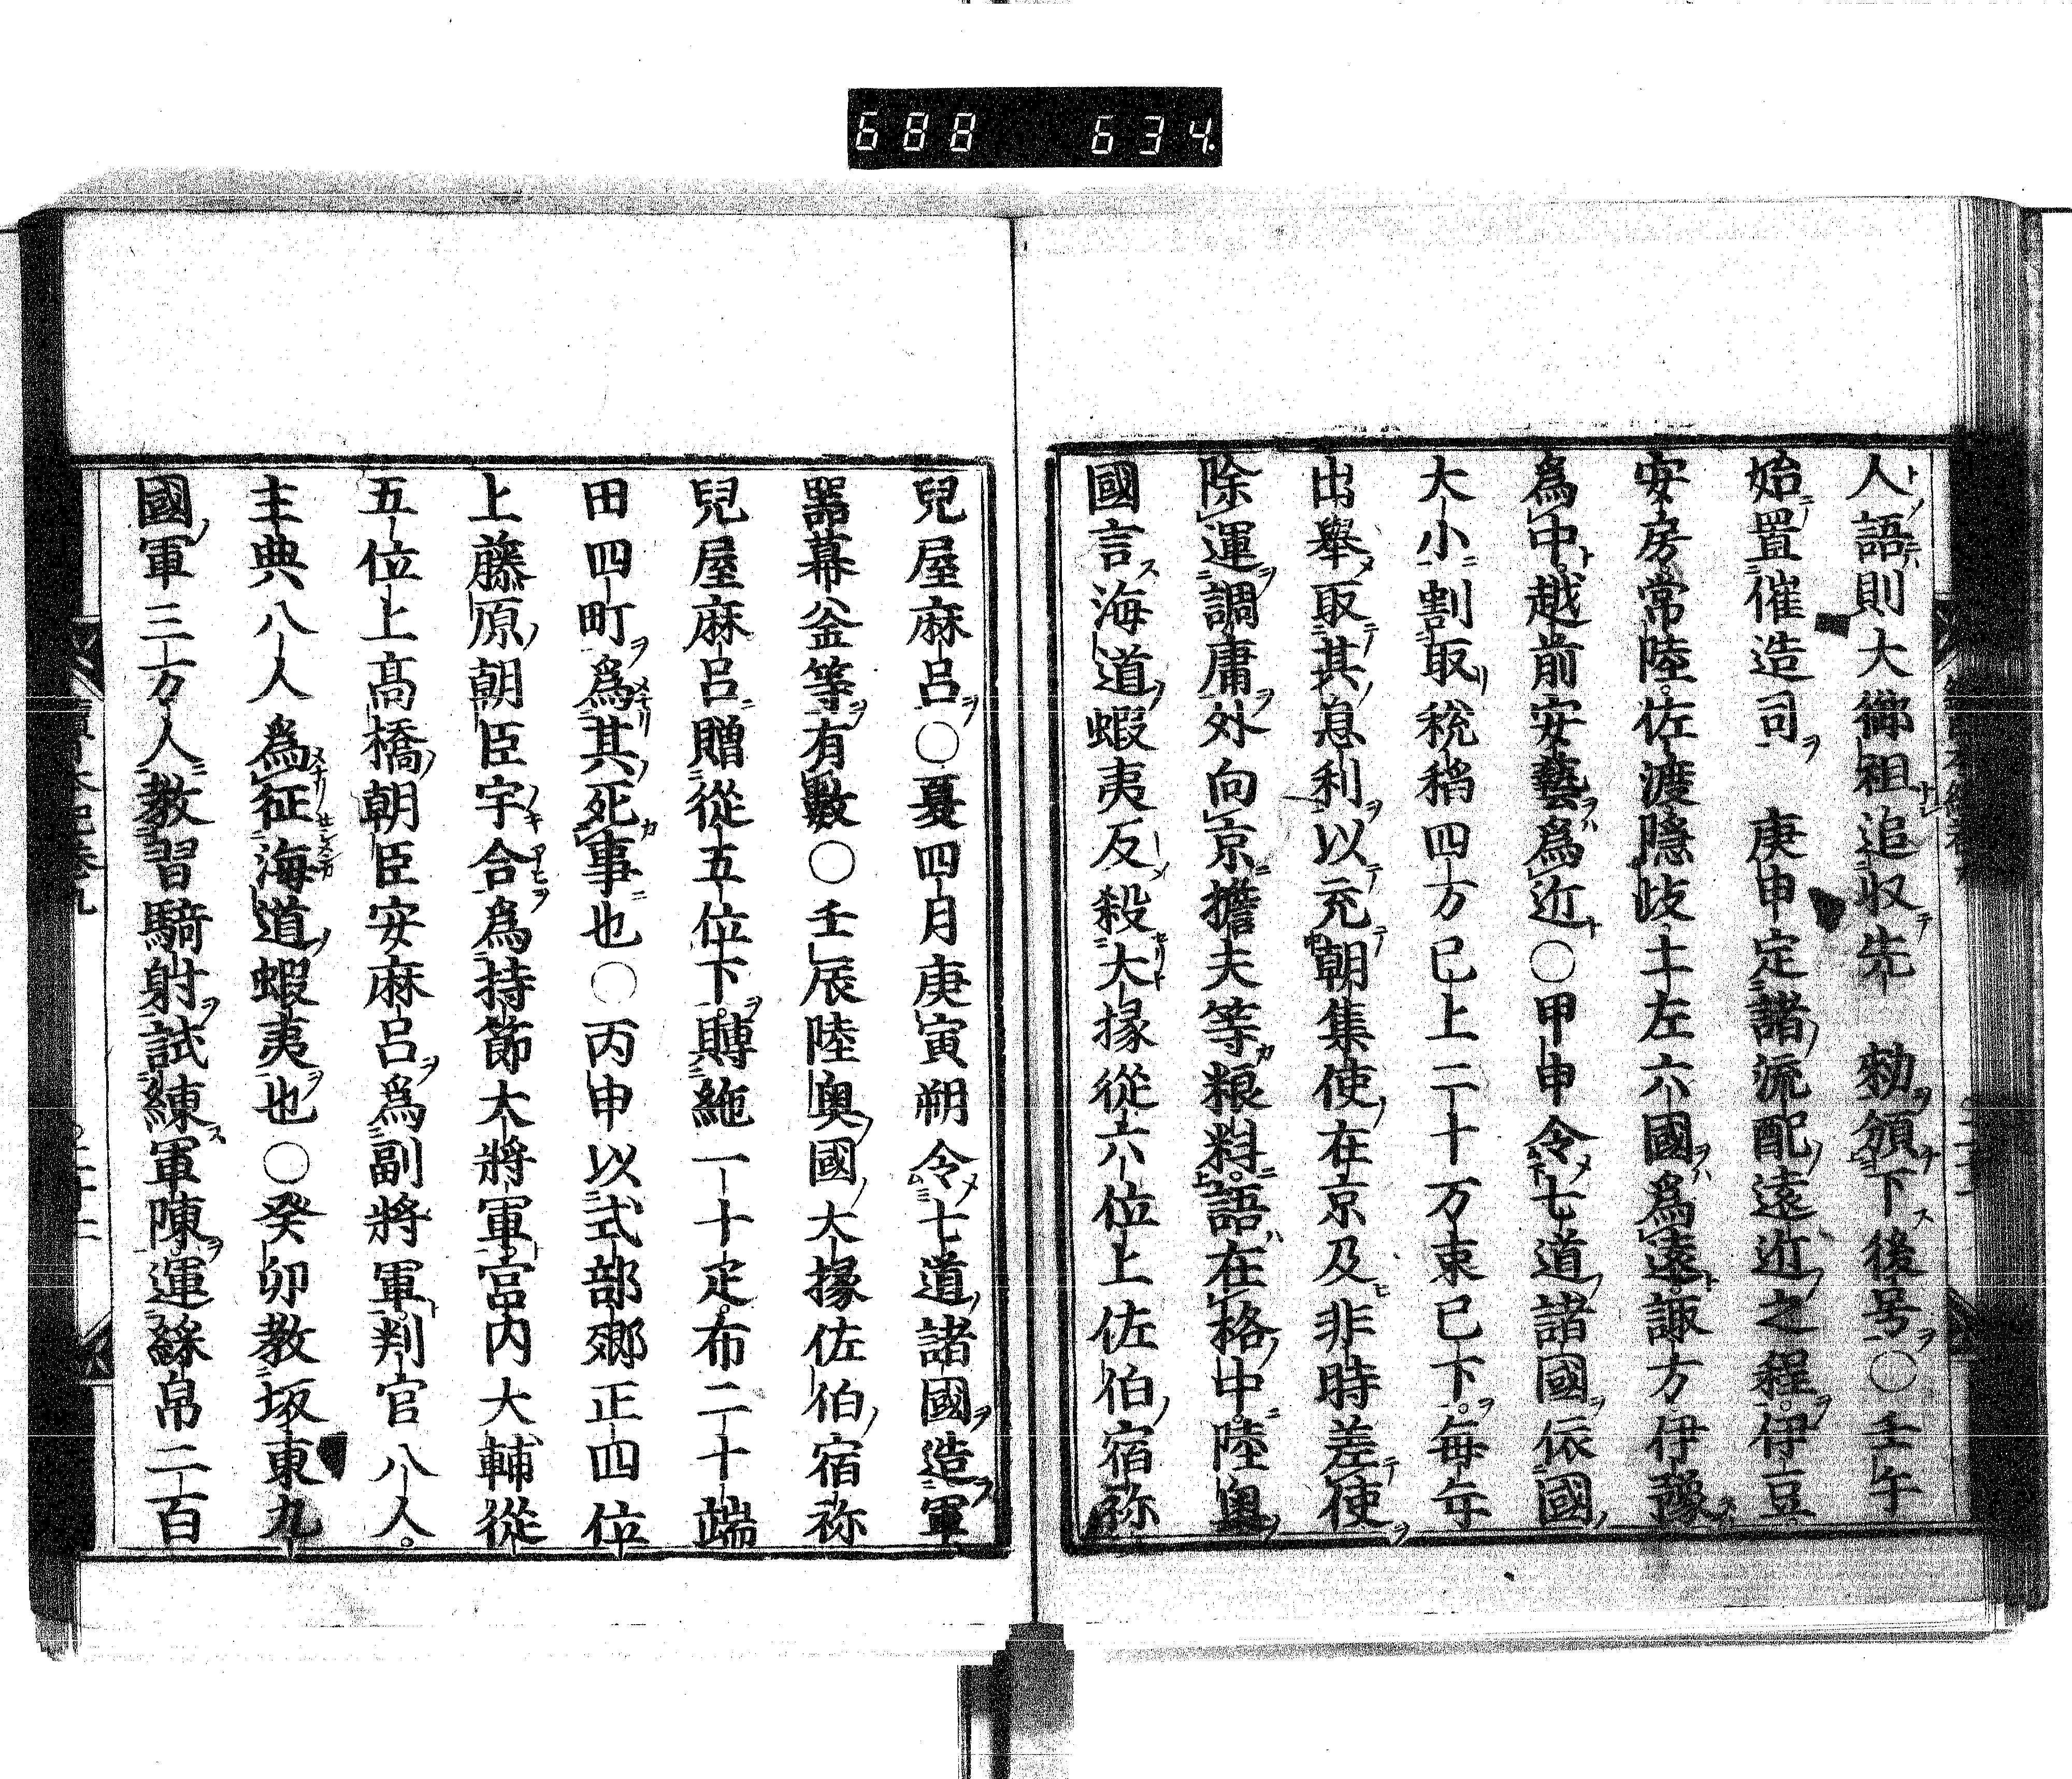 688 634
人語則大御祖追収先 勅頒下後号〇壬午
始置催造司 庚申定諸流配遠近之程伊豆
安房常陸佐渡隱歧土左六國爲遠諏方伊豫
爲中越前安藝爲近〇甲申令七道諸國依國
大小割取税稻四万已上二十万束已下毎年
出舉取其息利以充朝集使在京及非時差使
除運調庸外向京擔夫等粮料語在格中陸奥
國言海道蝦夷反殺大掾從六位上佐伯宿祢
兒屋麻呂〇夏四月庚寅朔令七道諸國造軍
器幕釜等有數〇壬辰陸奥國大掾佐伯宿祢
兒屋麻呂贈從五位下賻絁一十疋布二十端
田四町爲其死事也〇丙申以式部卿正四位
上藤原朝臣宇合爲持節大將軍宮内大輔從
五位上髙橋朝臣安麻呂爲副將軍判官八人
主典八人爲征海道蝦夷也〇癸卯教坂東九
國軍三万人教習騎射試練軍陳運綵帛二百